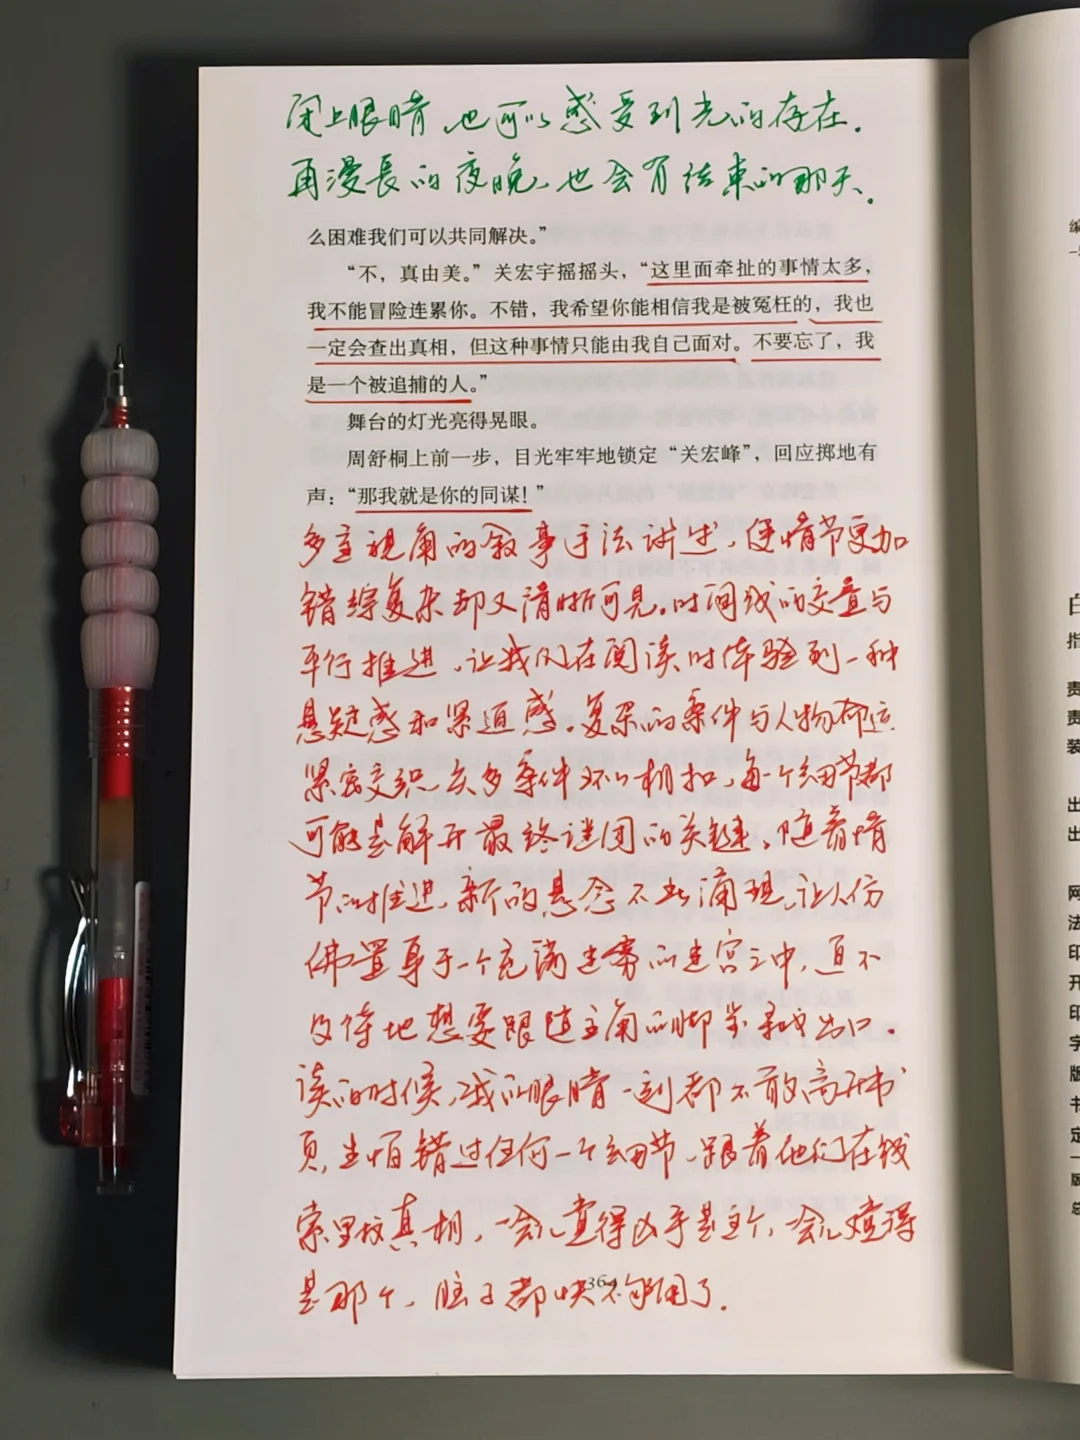 闭上眼睛，也可以感受到光的存在．
再漫長的夜晚、也会有结束的那天．
么困难我们可以共同解决。”
“不，真由美。”关宏宇摇摇头，“这里面牵扯的事情太多，
我不能冒险连累你。不错，我希望你能相信我是被冤枉的，我也
一定会查出真相，但这种事情只能由我自己面对。不要忘了，我
是一个被追捕的人。”
舞台的灯光亮得晃眼。
周舒桐上前一步，目光牢牢地锁定“关宏峰”，回应掷地有
声：“那我就是你的同谋！”
多重视角的叙事手法讲述，使情节更加
错综复杂却又清晰可见。时间线的交叠与
平行推进，让我们在阅读时体验到一种
悬疑感和紧迫感。复杂的案件与人物命运
紧密交织，众多案件环环相扣，每一个细节都
可能是解开最终谜团的关键。随着情
节的推进，新的悬念不断涌现，让人仿
佛置身于一个充满迷雾的迷宫之中，迫不
及待地想要跟随主角的脚步寻找出口。
读的时候，我的眼睛一刻都不敢离开书
页，生怕错过任何一个细节、跟着他们在线
索里找真相，一会儿觉得凶手是这个，一会儿觉得
是那个，脑子都快不够用了．
364
编
白
指
责
责
装
出
出
网
法
印
开
印
字
版
书
定
版
总